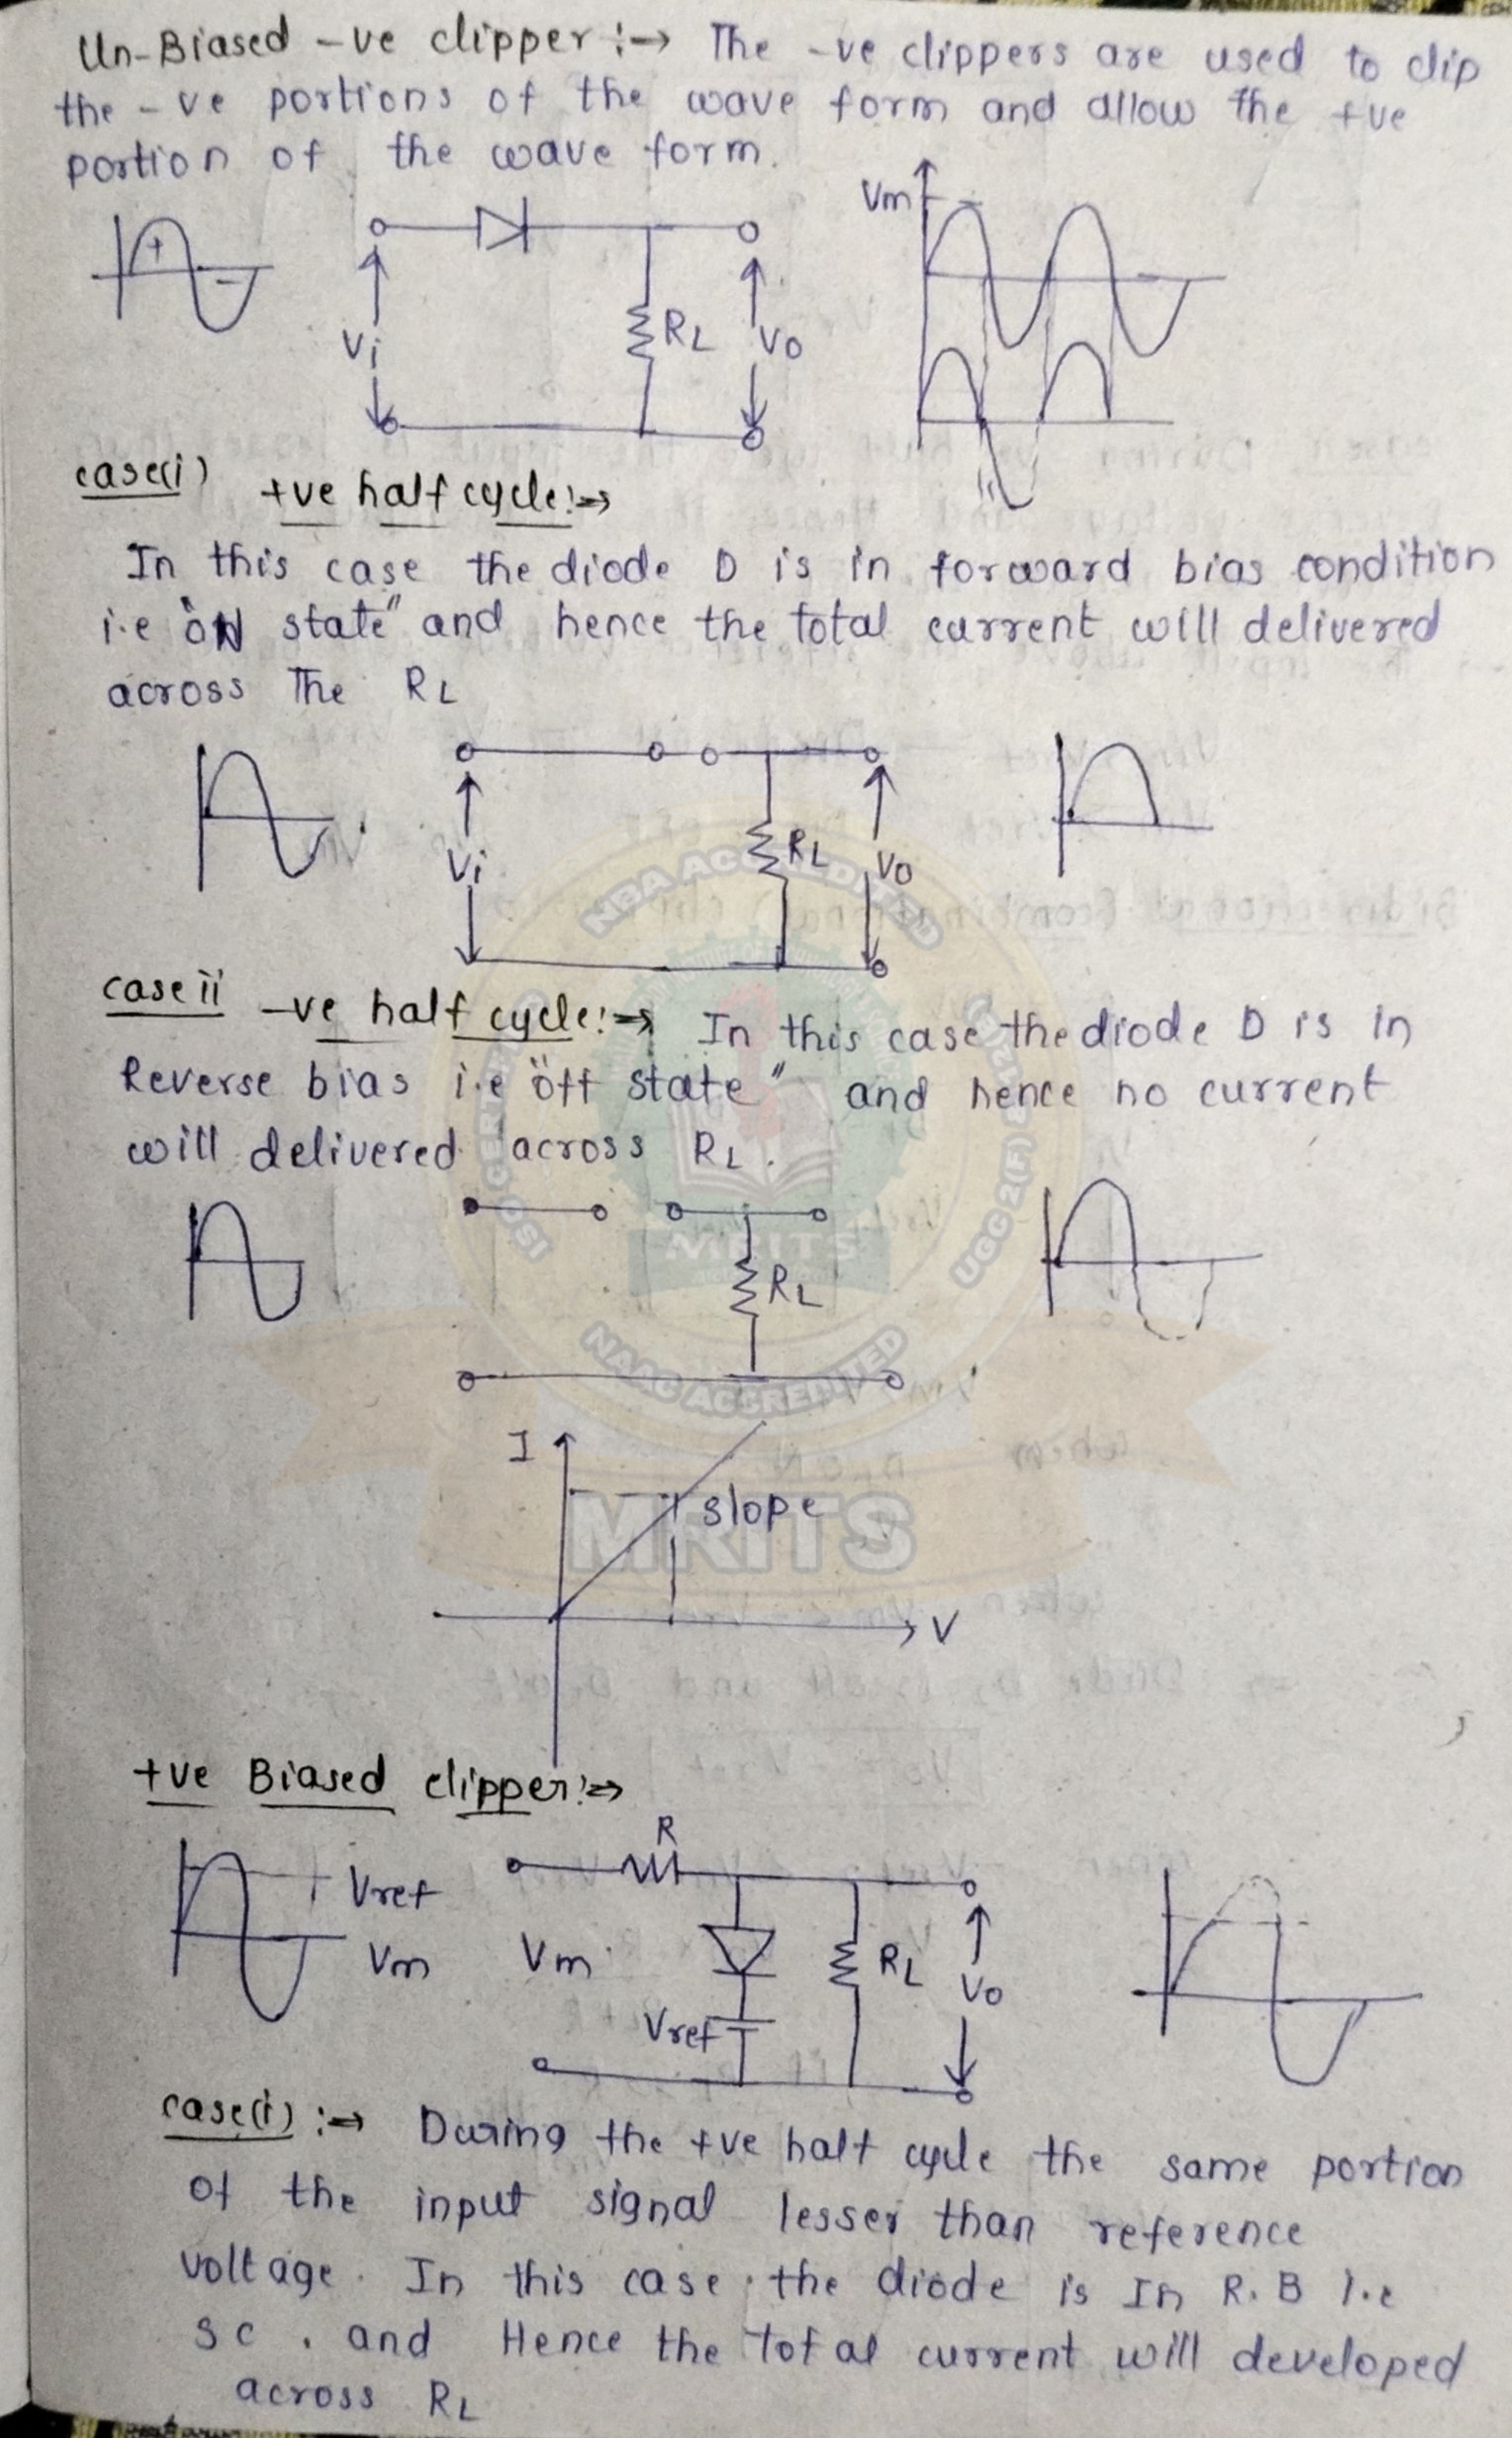 Un-Biased -ve clipper :→ The -ve clippers are used to clip
the -ve portions of the wave form and allow the +ve
portion of the wave form.
Vm
+
-
Vi
RL
Vo
case(i) +ve half cycle:→
In this case the diode D is in forward bias condition
i.e "ON state" and hence the total current will delivered
across The RL
Vi
RL
Vo
case ii -ve half cycle:→ In this case the diode D is in
Reverse bias i.e "off state" and hence no current
will delivered across RL.
RL
I
slope
V
+ve Biased clipper:→
R
Vref
Vm
Vm
RL
Vo
Vref
case(i) :→ During the +ve half cycle the same portion
of the input signal lesser than reference
voltage. In this case the diode is In R.B i.e
SC. and Hence the total current will developed
across RL
NBA ACCREDITED
UGC 2(F)
NAAC ACCREDITED
MRITS
MRITS